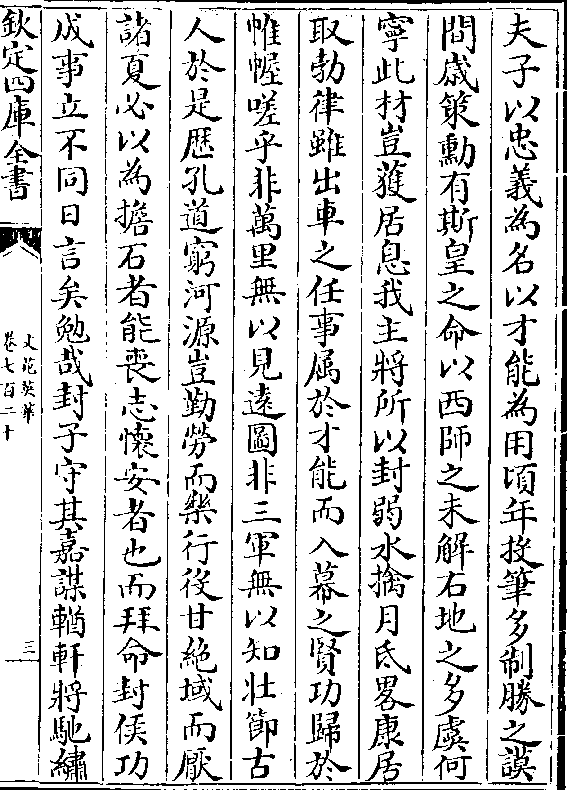 夫子以忠義為名以才能為用頃年投筆多制勝之謨
間歳䇿勳有斯皇之命以西師之未解右地之多虞何
寧此材豈獲居息我主將所以封弱水擒月氏畧康居
取勃律雖出車之任事属於才能而入幕之賢功歸於
帷幄嗟乎非萬里無以見遠圖非三軍無以知壯節古
人於是歴孔道窮河源豈勤勞而樂行役甘絶域而厭
諸夏必以為擔石者能喪志懷安者也而拜命封侯功
成事立不同日言矣勉哉封子守其嘉謀輶軒將馳繡
欽定四庫全書
文苑英華
卷七百二十
三